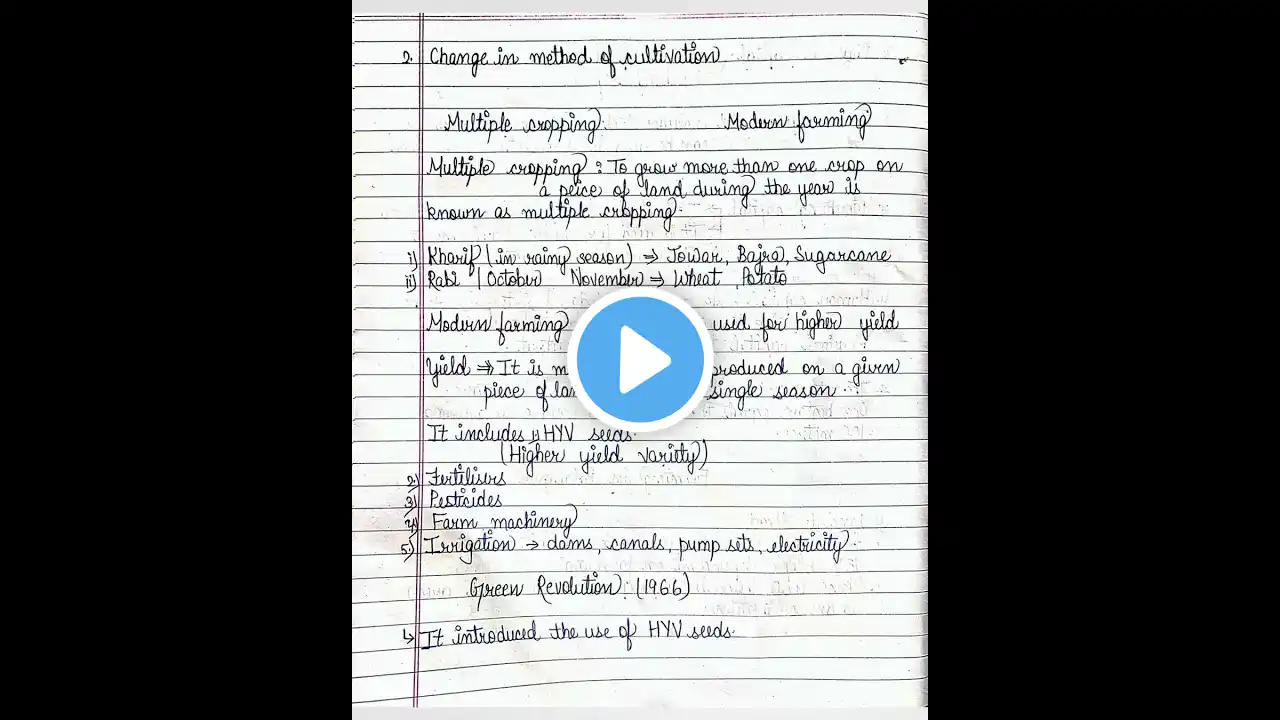 2. Change in method of cultivation
Multiple cropping. Modern farming
Multiple cropping : To grow more than one crop on
a peice of land during the year is
known as multiple cropping.
i) Kharif (in rainy season) ⇒ Jowar, Bajra, Sugarcane
ii) Rabi (October November ⇒ Wheat, Potato
Modern farming used for higher yield
Yield ⇒ It is produced on a given
piece of single season.
It includes 1) HYV seeds.
(Higher yield variety)
2) Fertilisers
3) Pesticides
4) Farm machinery
5.) Irrigation → dams, canals, pump sets, electricity.
Green Revolution: (1966)
↳ It introduced the use of HYV seeds.